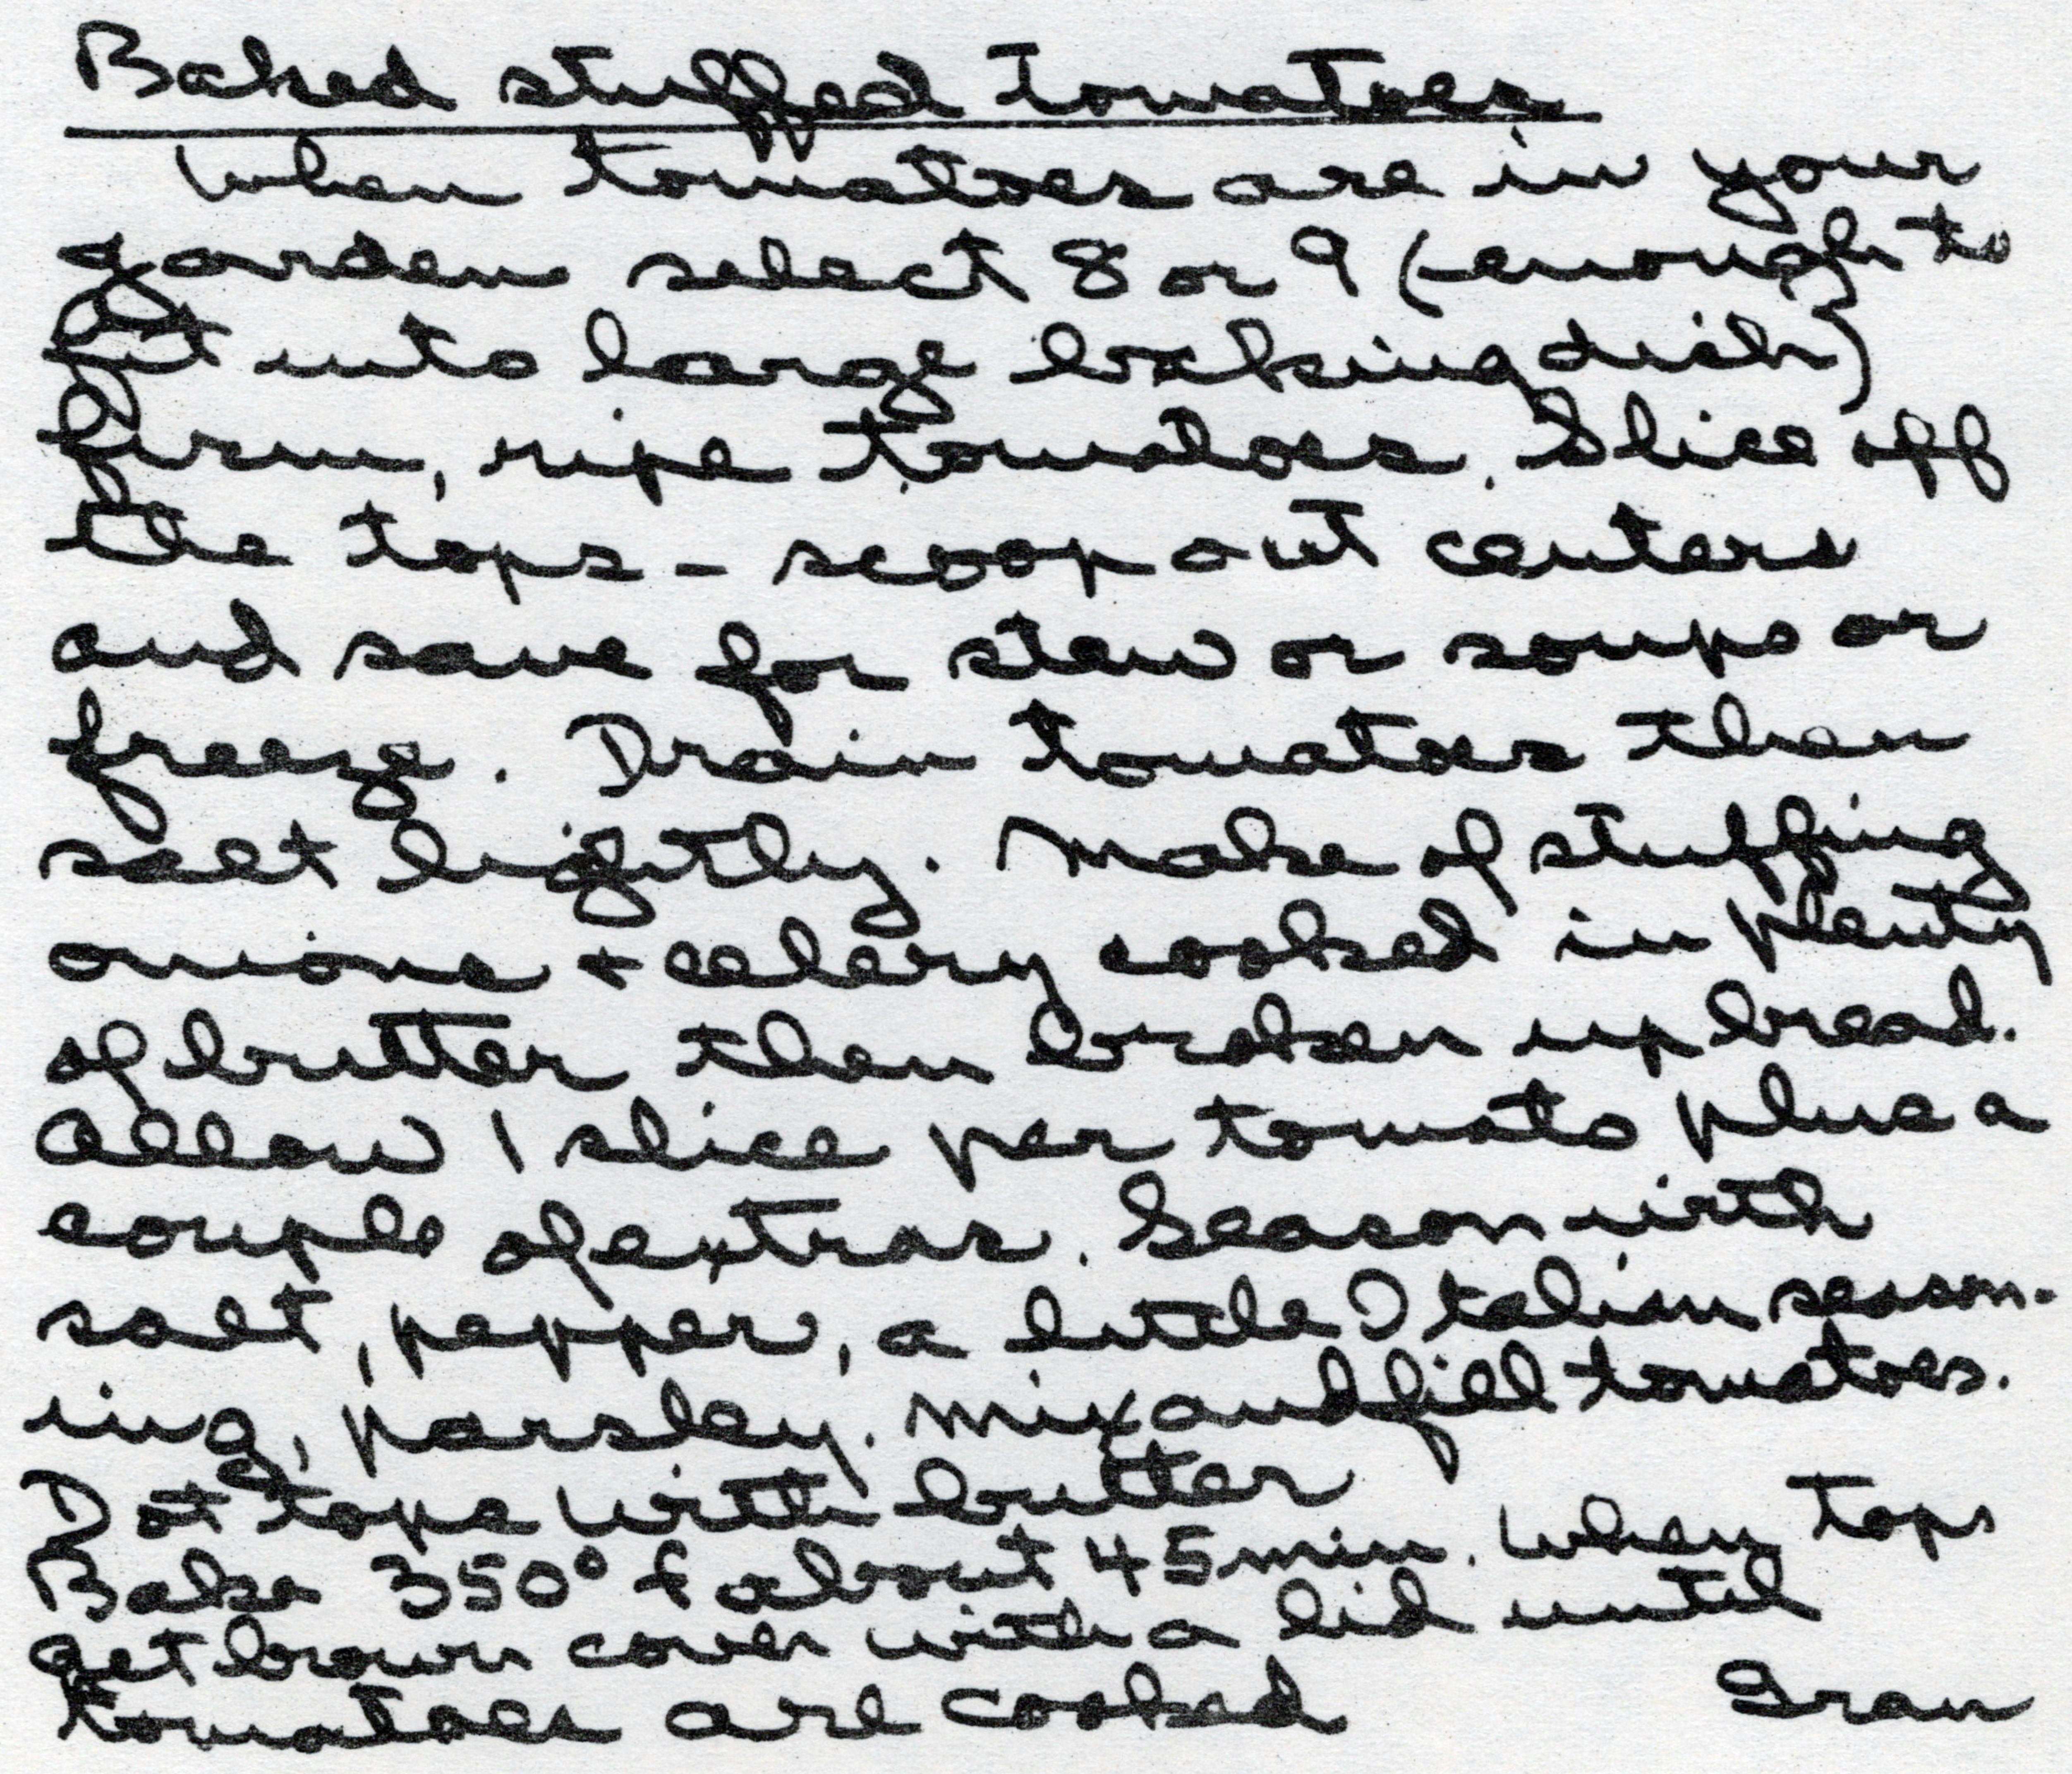 Baked stuffed Tomatoes
When tomatoes are in your
garden select 8 or 9 (enough to
fit into large baking dish)
firm, ripe tomatoes. Slice off
the tops - scoop out centers
and save for stew or soups or
freeze. Drain tomatoes then
salt lightly. Make of stuffing
onions + celery cooked in plenty
of butter then broken up bread.
Allow 1 slice per tomato plus a
couple of extras. Season with
salt, pepper, a little Italian season-
ing, parsley. Mix and fill tomatoes.
Dot tops with butter
Bake 350° f about 45 min. When tops
get brown cover with a lid until
tomatoes are cooked
Gran